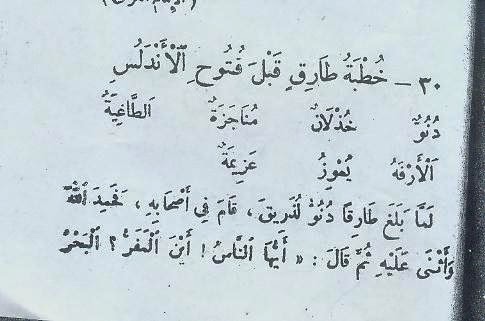 (الإمام الغزالي)
٣٠ – خُطْبَةُ طَارِقٍ قَبْلَ فُتُوحِ ٱلْأَنْدَلُسِ
دُنُوٌّ خُذْلَانٌ مُنَاجَزَةٌ ٱلطَّاغِيَةُ
ٱلْأَرْفَهُ يُعْوِزُ عَزِيمَةٌ
لَمَّا بَلَغَ طَارِقًا دُنُوُّ لُذَرِيقَ، قَامَ فِي أَصْحَابِهِ، فَحَمِدَ ٱللّٰهَ
وَأَثْنَى عَلَيْهِ ثُمَّ قَالَ: « أَيُّهَا ٱلنَّاسُ! أَيْنَ ٱلْمَفَرُّ؟ ٱلْبَحْرُ